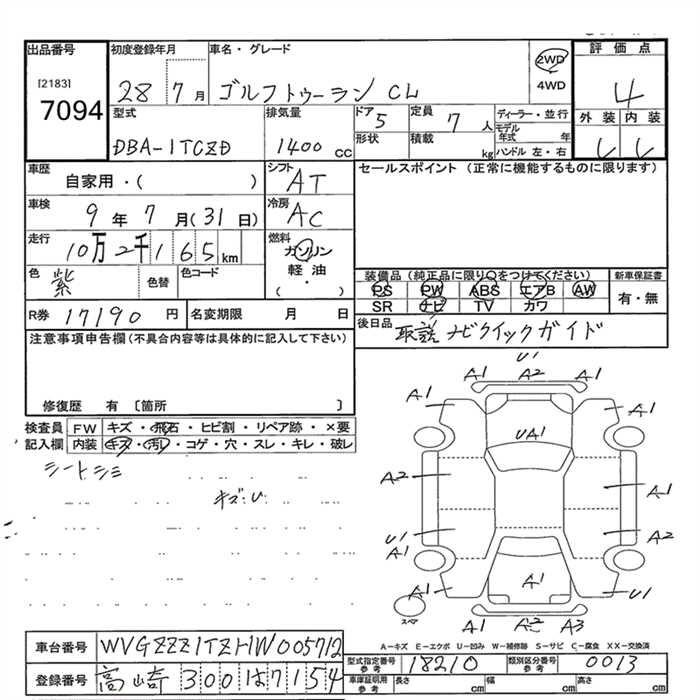 出品番号 初度登録年月 車名・グレード 2WD 評価点
[2183] 7094 28 7月 ゴルフトゥーラン CL 4WD 4
型式 排気量 ドア 5 定員 7人 ディーラー・並行 外装 内装
DBA-1TCZD 1400cc 形状 積載 kg モデル年式 年 ハンドル 左・右
車歴 自家用・( ) シフト AT セールスポイント (正常に機能するものに限ります)
車検 9年7月(31日) 冷房 AC
走行 10万2千165km 燃料 ガソリン 軽油・( )
色 紫 色替 色コード 装備品(純正品に限り○をつけてください) 新車保証書
PS PW ABS エアB AW 有・無
SR ナビ TV カワ
R券 17190円 名変期限 月 日 後日品 取説 ナビクイックガイド
注意事項申告欄(不具合内容等は具体的に記入して下さい)
修復歴 有 〔箇所 〕
検査員記入欄 FW キズ・飛石・ヒビ割・リペア跡・×要
内装 キズ・汚れ・コゲ・穴・スレ・キレ・破レ
シートシミ
キズ:U
U1
A1 A2 A1
A1 A1
UA1
A2 A1
U1 A2
A1
A1 A1 U1
スペア A1 A2 A3
A-キズ E-エクボ U-凹み W-補修跡 S-サビ C-腐食 XX-交換済
車台番号 WVGZZZ1TZHW005712 型式指定番号 参考 18210 類別区分番号 参考 0013
登録番号 高崎 300 は 7154 車庫証明用 参考 長さ cm 幅 cm 高さ cm